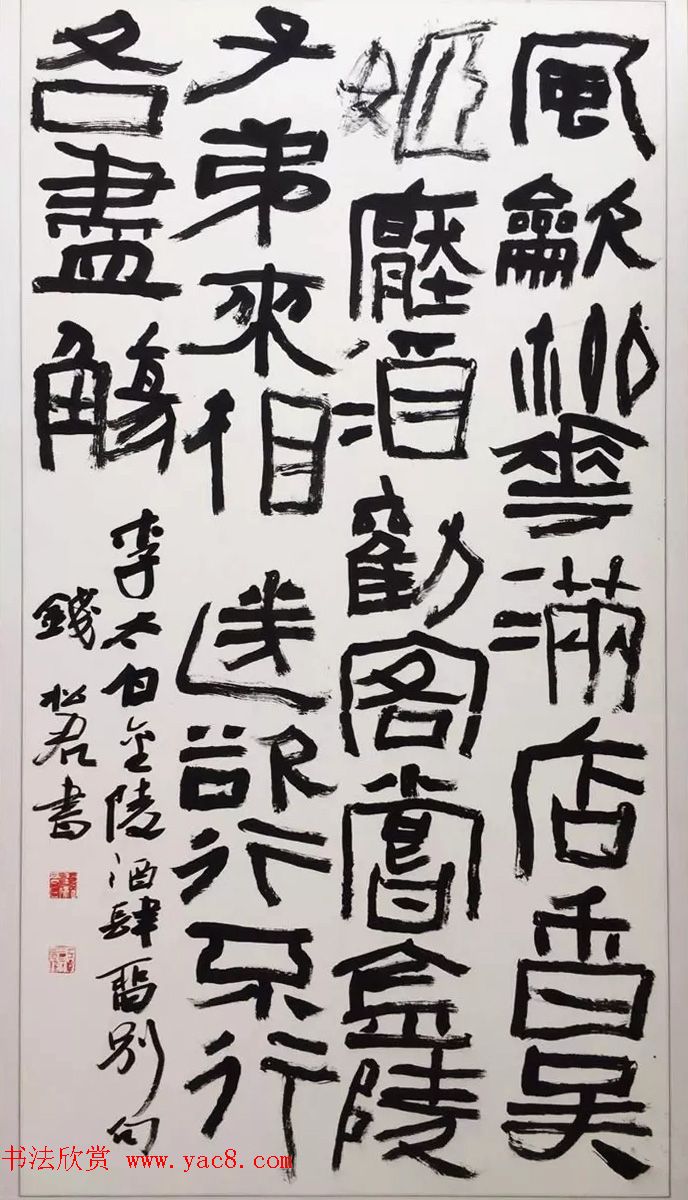 風龡柳華滿店香吳
姬壓酒勸客嘗金陵
子弟來相送欲行不行
各盡觴
李太白金陵酒肆留別句
錢松君書
书法欣赏 www.yac8.com